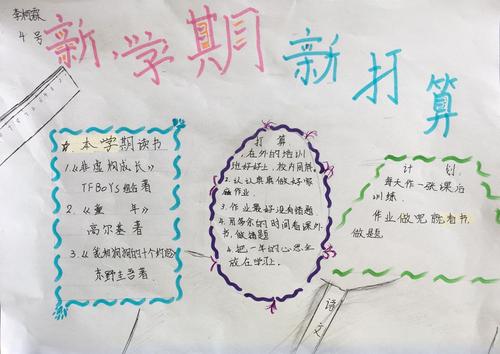 4号
新学期 新打算
本学期读书
1.《非虚构成长》
TFBOYS 组合著
2.《童年》
高尔基著
3.
东野圭吾著
打算
1.在外的培训
班好好上,校内同样。
2.认认真真做好家
作业。
3.作业最好没有错题
4.用多余的时间看课外
书,做错题
4.把一年的心思全
放在学习。
计划
每天作一张课后
训练。
作业做吧就看书
做题。
语文